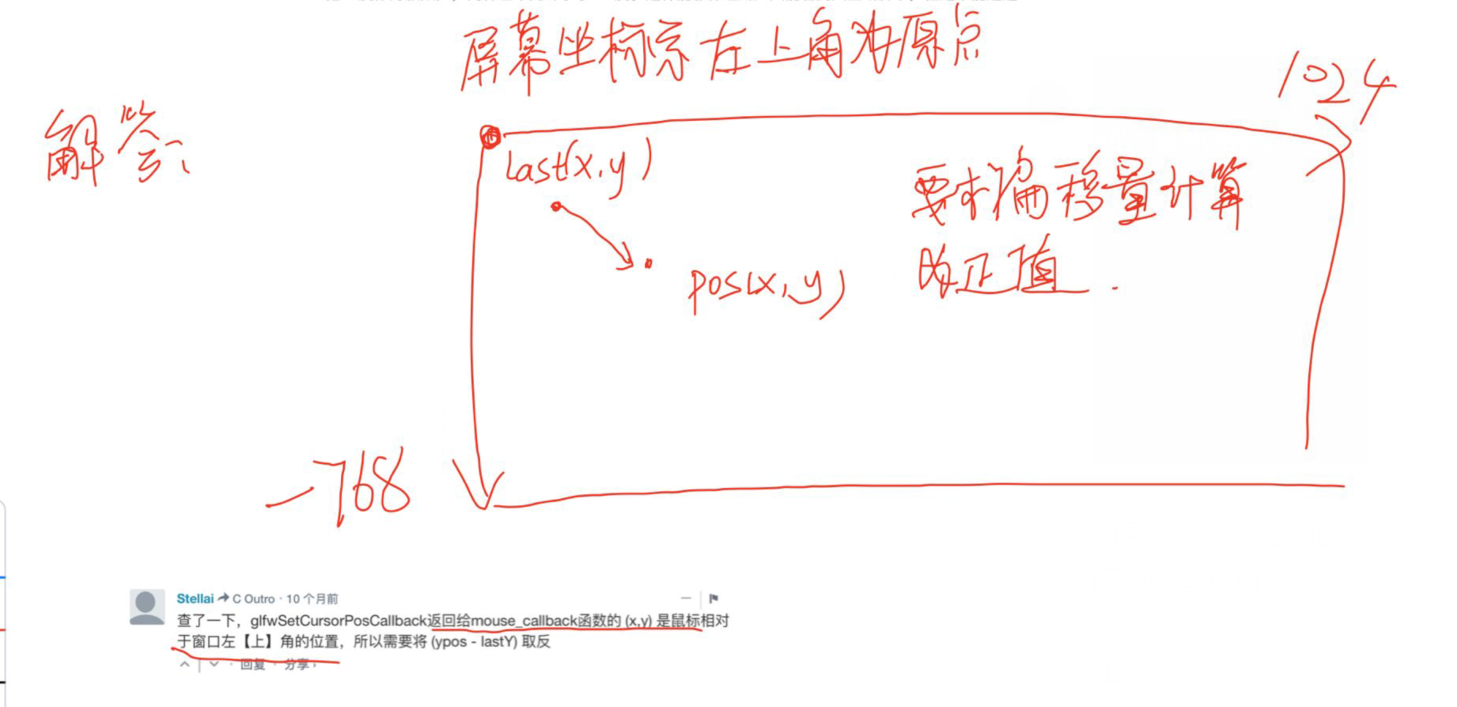 屏幕坐标系左上角为原点
1024
解答:
last(x,y)
要求偏移量计算
的正值.
pos(x,y)
-768
Stellai → C Outro · 10 个月前
查了一下，glfwSetCursorPosCallback返回给mouse_callback函数的 (x,y) 是鼠标相对
于窗口左【上】角的位置，所以需要将 (ypos - lastY) 取反
回复 · 分享 ›